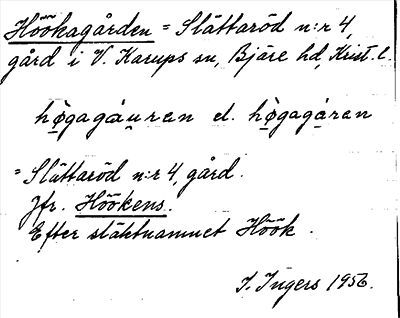 Höökagården = Slättaröd n:r 4,
gård i V. Karups sn, Bjäre hd, Krist. l.
hø̀gagáu̯ren el. hø̀gagáren
= Slättaröd n:r 4, gård.
Jfr. Höökens.
Efter släktnamnet Höök.
I. Ingers 1956.